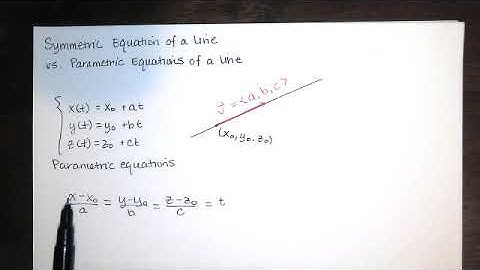 Symmetric Equation of a Line
vs. Parametric Equations of a Line
x(t) = x₀ + at
y(t) = y₀ + bt
z(t) = z₀ + ct
v = <a, b, c>
(x₀, y₀, z₀)
Parametric equations
x-x₀/a = y-y₀/b = z-z₀/c = t